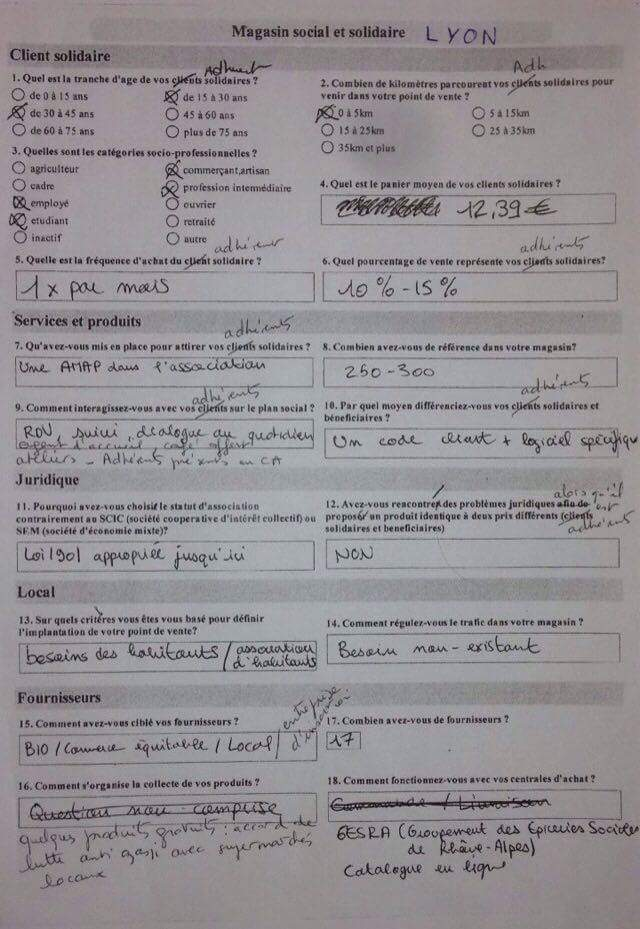 Magasin social et solidaire LYON
Client solidaire
Adhérent
1. Quel est la tranche d'age de vos clients solidaires ?
de 0 à 15 ans
de 15 à 30 ans
de 30 à 45 ans
45 à 60 ans
de 60 à 75 ans
plus de 75 ans
Adh
2. Combien de kilomètres parcourent vos clients solidaires pour
venir dans votre point de vente ?
0 à 5km
5 à 15km
15 à 25km
25 à 35km
35km et plus
3. Quelles sont les catégories socio-professionnelles ?
agriculteur
commerçant,artisan
cadre
profession intermédiaire
employé
ouvrier
etudiant
retraité
inactif
autre
4. Quel est le panier moyen de vos clients solidaires ?
12,39 €
adhérent
5. Quelle est la fréquence d'achat du client solidaire ?
1 x par mois
adhérents
6. Quel pourcentage de vente représente vos clients solidaires?
10 % - 15 %
Services et produits
adhérents
7. Qu'avez-vous mis en place pour attirer vos clients solidaires ?
Une AMAP dans l'association
8. Combien avez-vous de référence dans votre magasin?
250 - 300
adhérents
9. Comment interagissez-vous avec vos clients sur le plan social ?
RDV suivi, dialogue au quotidien
agent d'accueil café offert
ateliers - Adhérents présents au CA
adhérents
10. Par quel moyen différenciez-vous vos clients solidaires et
béneficiaires ?
Un code client + logiciel spécifique
Juridique
11. Pourquoi avez-vous choisi le statut d'association
contrairement au SCIC (société cooperative d'intérêt collectif) ou
SEM (société d'économie mixte)?
Loi 1901 appropriée jusqu'ici
alors qu'il
12. Avez-vous rencontrer des problèmes juridiques afin de est
proposér un produit identique à deux prix différents (clients
solidaires et beneficiaires) adhérents
NON
Local
13. Sur quels critères vous êtes vous basé pour définir
l'implantation de votre point de vente?
besoins des habitants / association
d'habitants
14. Comment régulez-vous le trafic dans votre magasin ?
Besoin non-existant
Fournisseurs
15. Comment avez-vous ciblé vos fournisseurs ?
BIO / Commerce équitable / Local / entreprise
d'insertion
17. Combien avez-vous de fournisseurs ?
17
16. Comment s'organise la collecte de vos produits ?
Question non comprise
quelques produits gratuits : accord de
lutte anti gaspi avec supermarchés
locaux
18. Comment fonctionnez-vous avec vos centrales d'achat ?
Commande / Livraison
GESRA (Groupement des Epiceries Sociales
de Rhône-Alpes)
Catalogue en ligne